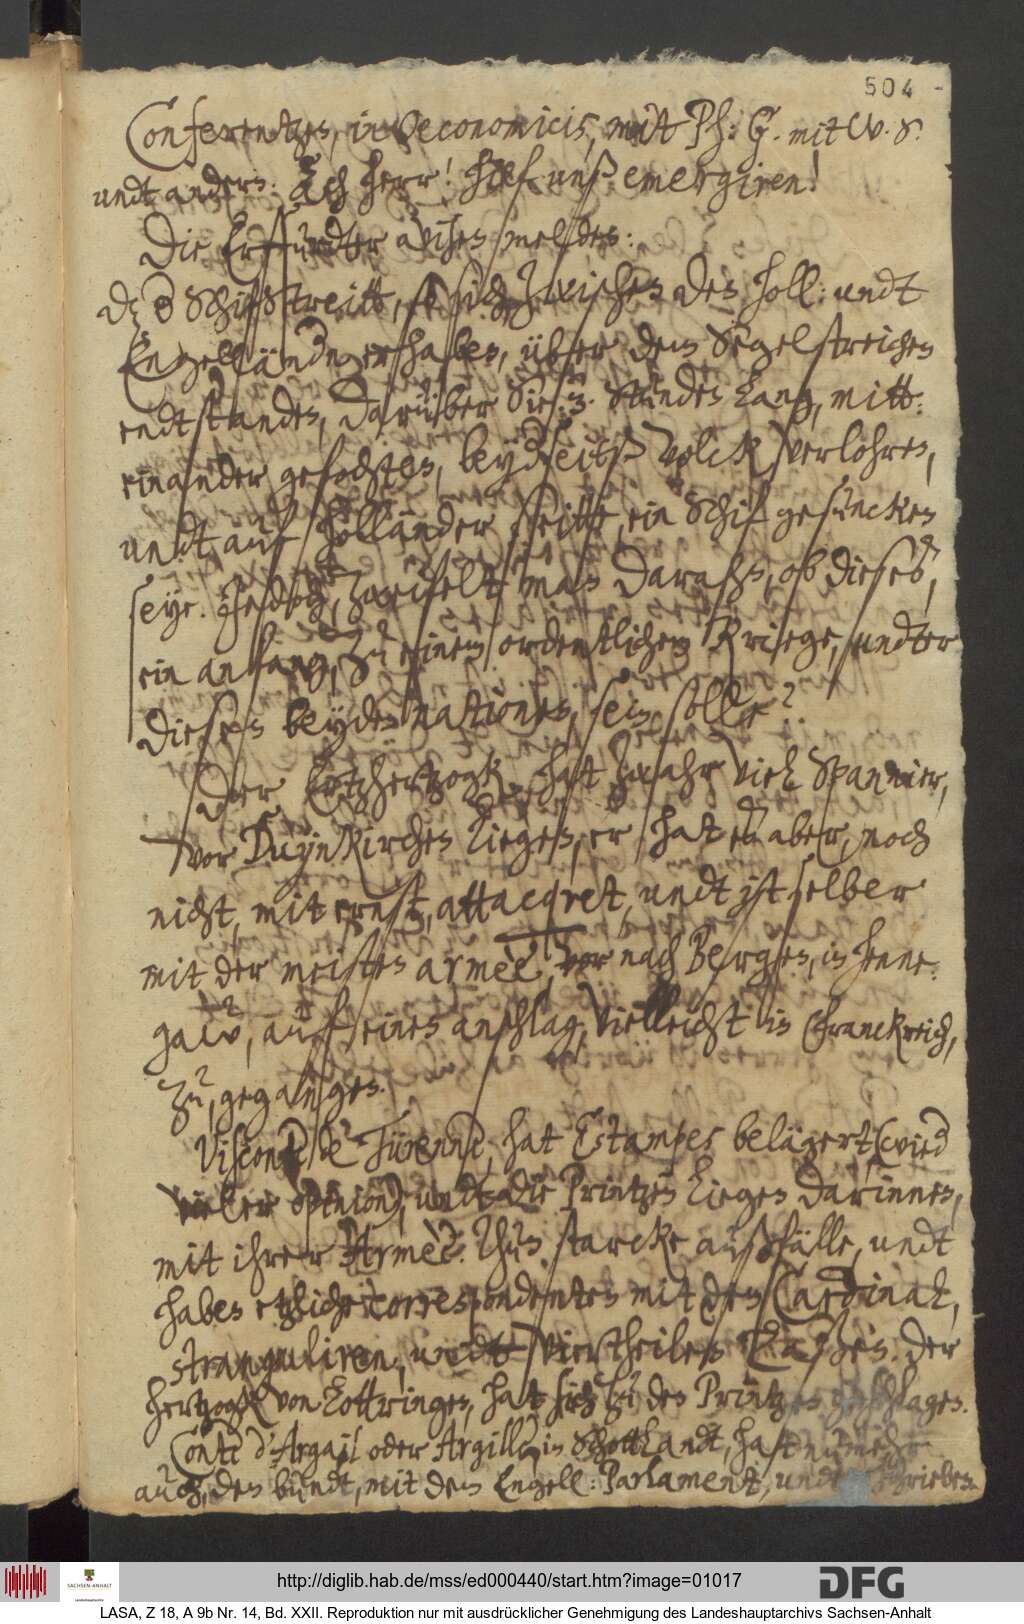 504
Conferentzen, in Oeconomicis, mit Ph: G. mit W. S.
undt anders. Ach Herr! hilf unß emergiren!
Die Erffurdter avisen melden:
dz Schiffstreitt, so sich zwischen den Holl: undt
Engelländern erhaben, über dem Segelstreichen
endtstanden, darüber Sie 3. Stunden lang, mitt:
einander gefochten, beyderseitß Volck verlohren,
undt auf Holländer seitte, ein Schif gesuncken
seye. Jedoch, zweifelt man daran, ob dieses,
ein anfang, zu einem ordentlichen Kriege, undter
diesen beyden nationen, sein solle?
Der Ertzhertzogk, hat zwahr viel Spannier,
vor Duynkirchen liegen, er hat es aber, noch
nicht, mit ernst, attacqret, undt ist selber
mit der meisten armèe, nach Bergen, in Henne:
gaw, auf einen anschlag, vielleicht in Franckreich,
zu, gegangen.
Viscont de Türenne, hat Estampes belägert (wied
vieler opinion), undt die Printzen liegen darinnen,
mit ihrer Armèe. Thun starcke außfälle, undt
haben etzliche correspondenten mit dem Cardinal,
stranguliren, undt viertheilen laßen. Der
Hertzogk von Lottringen, hat sich zu den Printzen geschlagen.
Conte d'Argail oder Argille in SchottLandt, hat nunmehr
auch, den bundt, mit dem Engell: Parlament, undt schrieben
http://diglib.hab.de/mss/ed000440/start.htm?image=01017
SACHSEN-ANHALT
DFG
LASA, Z 18, A 9b Nr. 14, Bd. XXII. Reproduktion nur mit ausdrücklicher Genehmigung des Landeshauptarchivs Sachsen-Anhalt